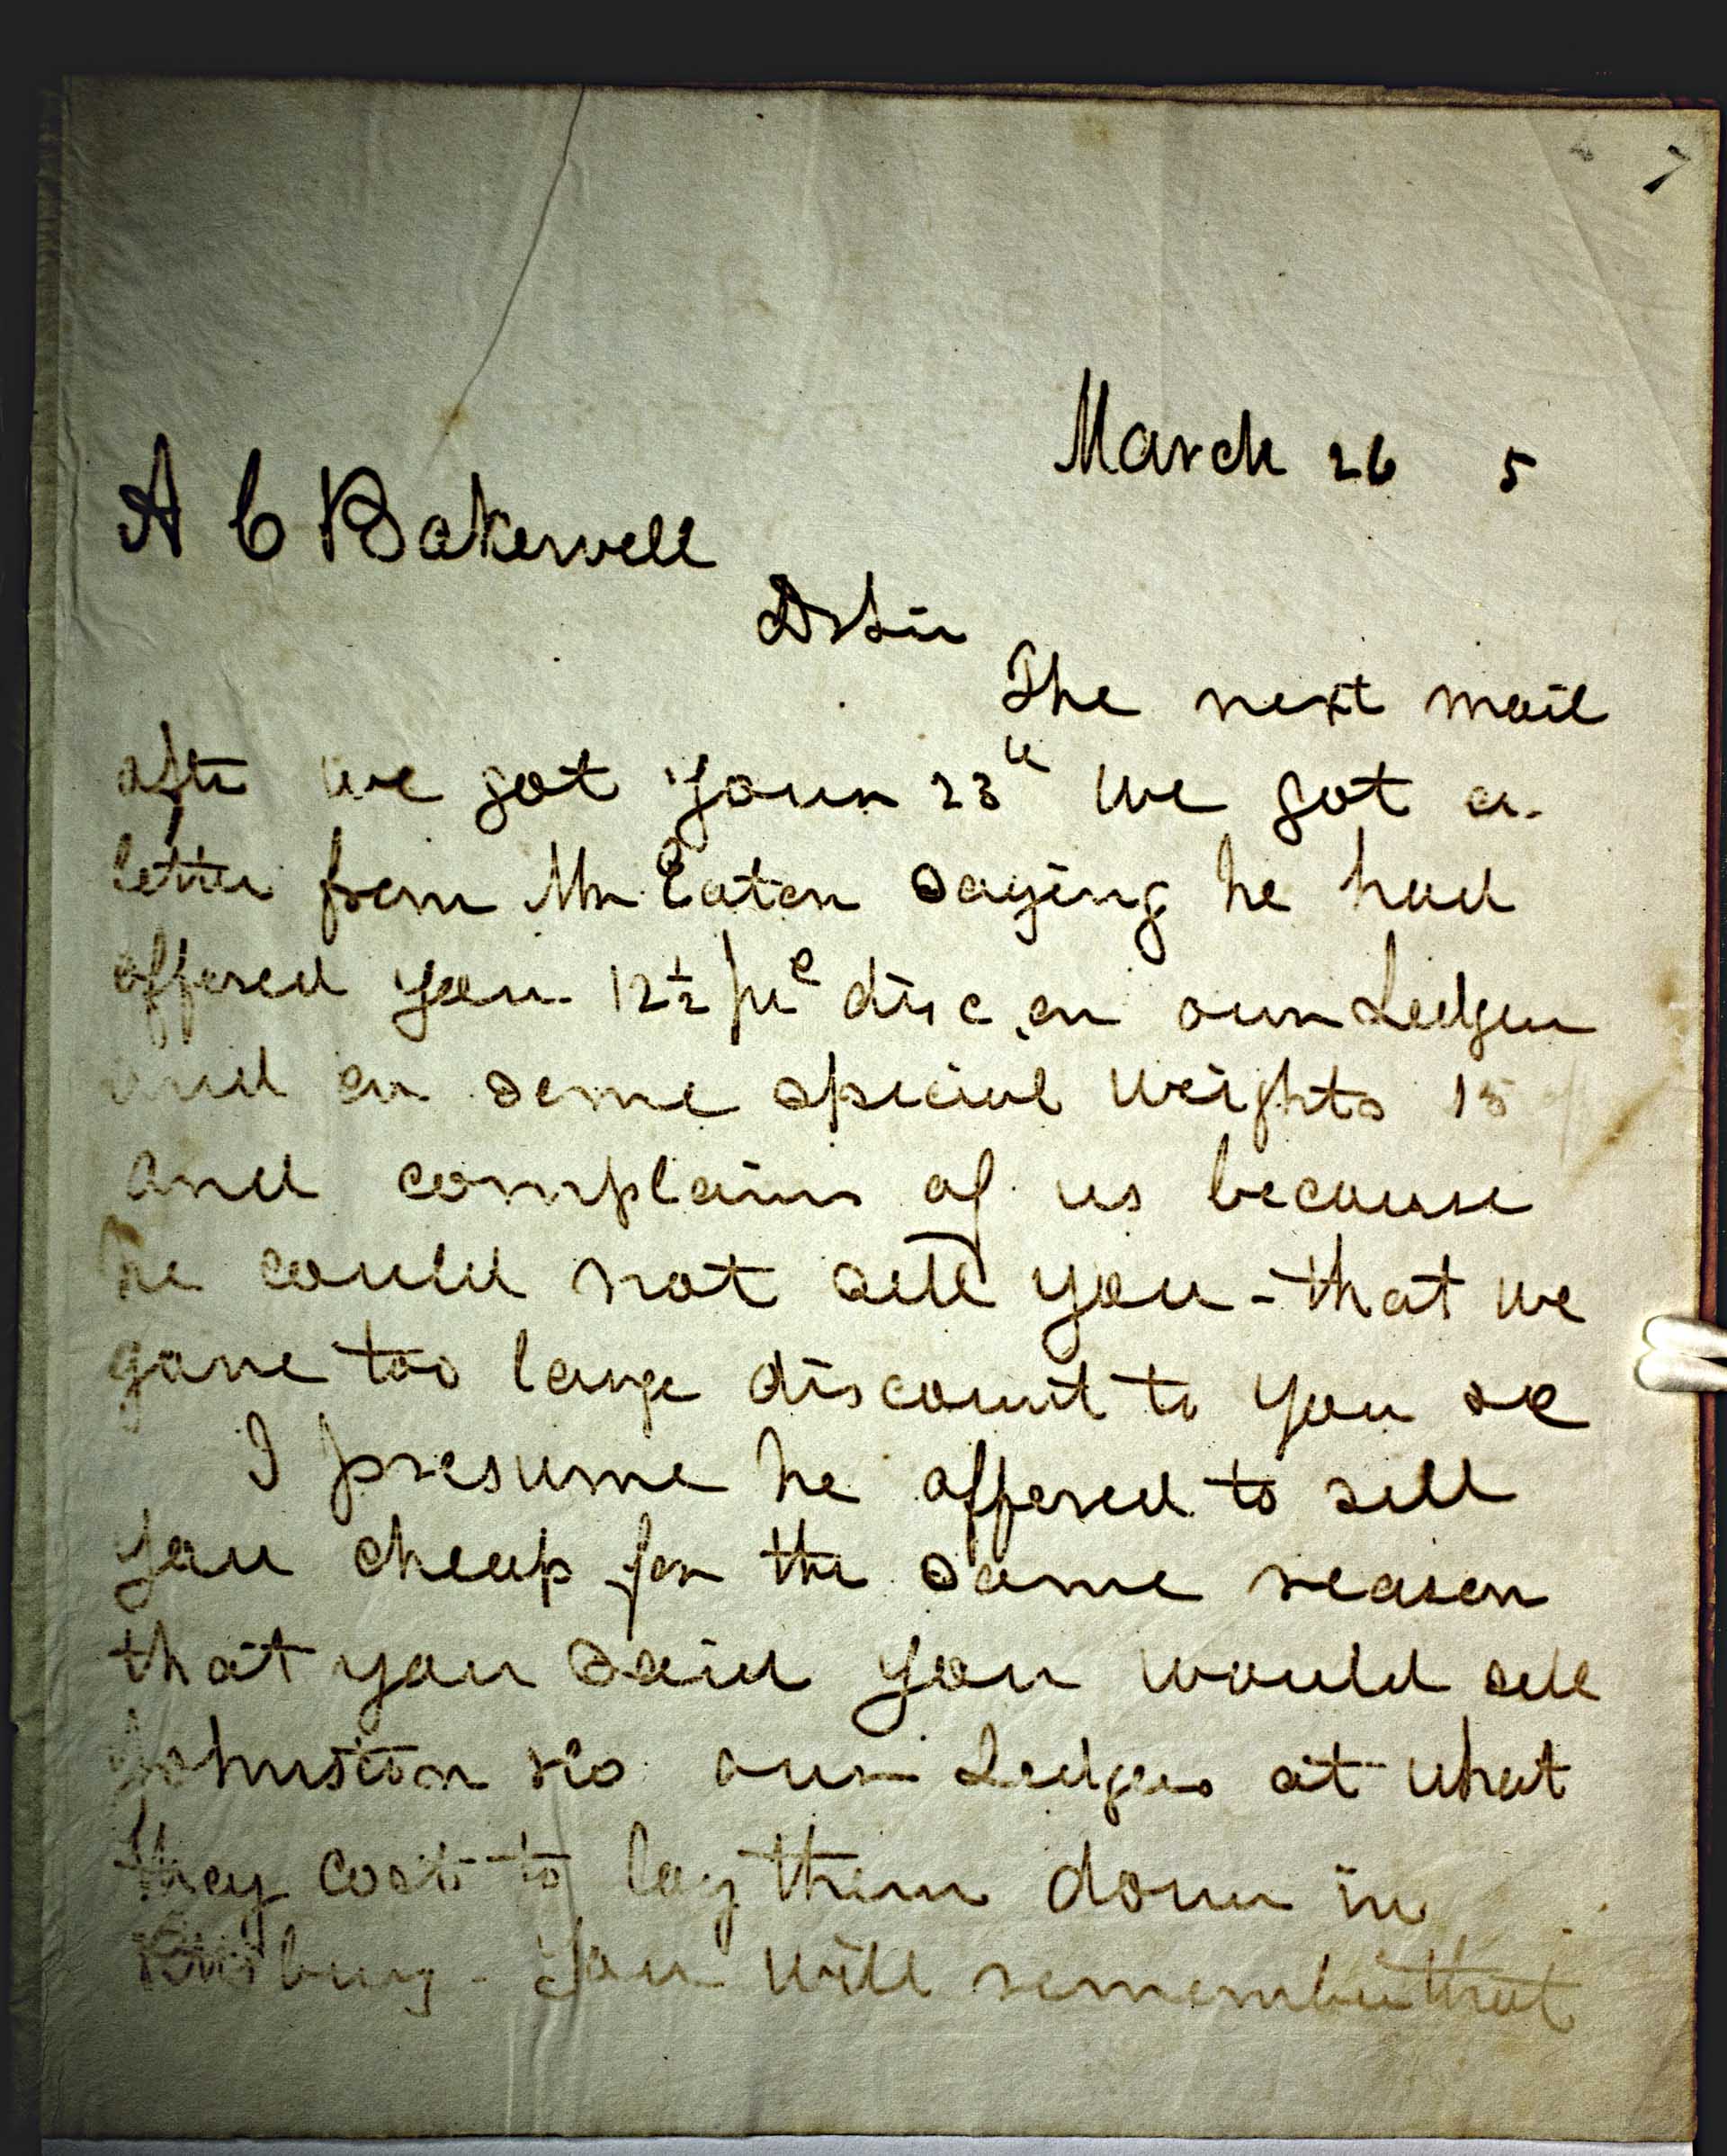 7
March 26 5
A C Bakewell
Dr Sir
The next mail
after we got your 23d we got a
letter from Mr Eaton saying he had
offered you 12½ pr c disc on our Ledger
and on some special weights 15
and complains of us because
he could not sell you - that we
gave too large discount to you &c
I presume he offered to sell
you cheap for the same reason
that you said you would sell
Johnston &co our Ledgers at what
they cost to lay them down in
You will remember that